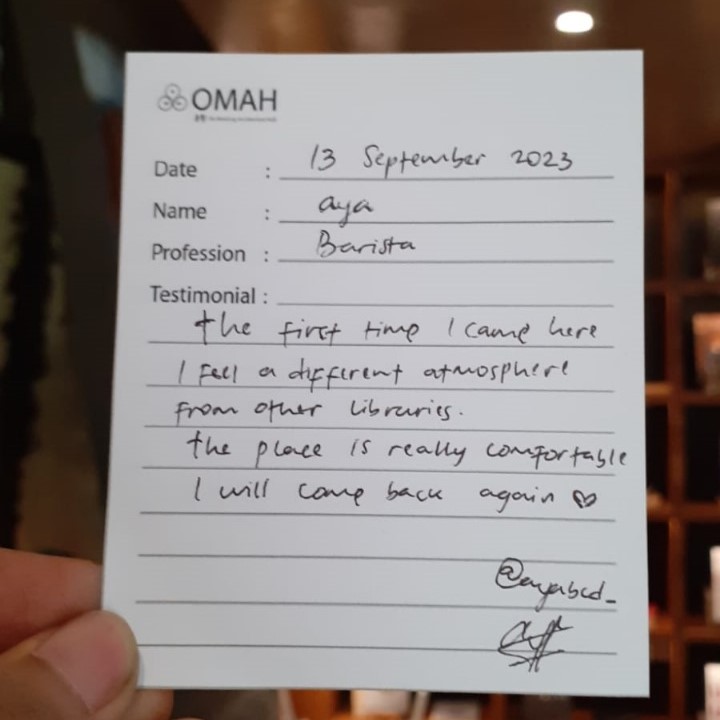 OMAH
Date : 13 September 2023
Name : aya
Profession : Barista
Testimonial :
the first time I came here
I feel a different atmosphere
from other libraries.
the place is really comfortable
I will come back again ♡
@ayabcd_